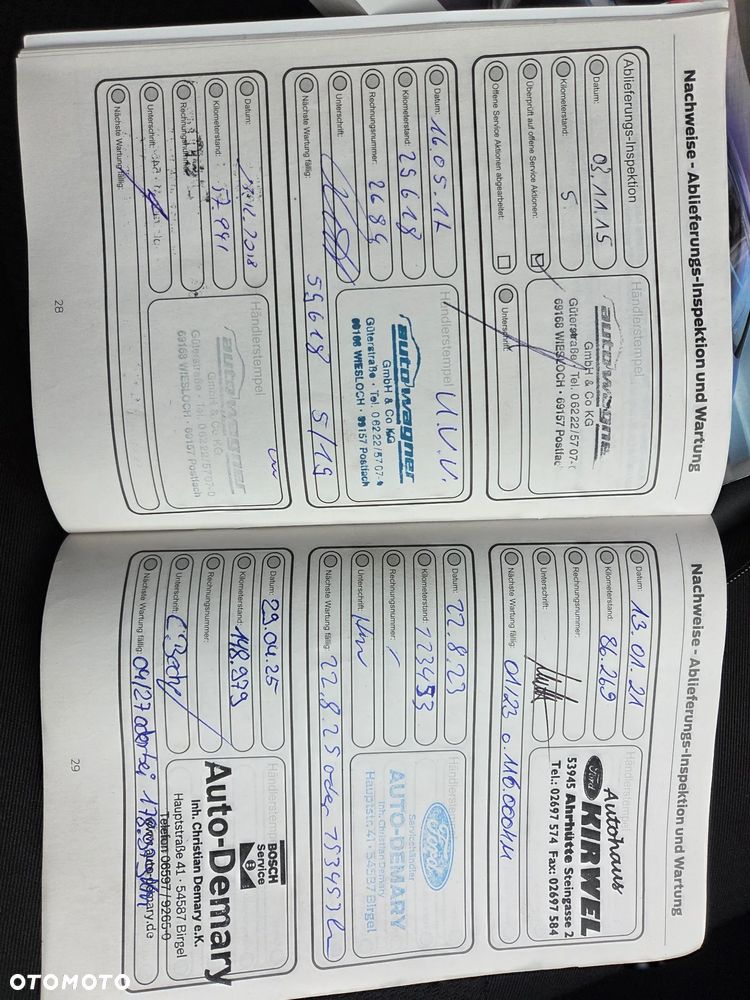 Nachweise - Ablieferungs-Inspektion und Wartung
Ablieferungs-Inspektion
Datum: 03.11.15
Kilometerstand: 5
Überprüft auf offene Service Aktionen:
Offene Service Aktionen abgearbeitet:
Unterschrift:
Händlerstempel
auto wagner
GmbH & Co KG
Güterstraße · Tel. 0 62 22/57 07-
69168 WIESLOCH · 69157 Postfach
Datum: 16.05.17
Kilometerstand: 29618
Rechnungsnummer: 2684
Unterschrift:
Nächste Wartung fällig: 59618 5/19
Händlerstempel U.V.V.
auto wagner
GmbH & Co KG
Güterstraße · Tel. 0 62 22/57 07-
69168 WIESLOCH · 69157 Postfach
Datum: 2018
Kilometerstand: 57 991
Rechnungsnummer:
Unterschrift:
Nächste Wartung fällig:
Händlerstempel
auto wagner
GmbH & Co KG
Güterstraße · Tel. 0 62 22/57 07-0
69168 WIESLOCH · 69157 Postfach
28
Nachweise - Ablieferungs-Inspektion und Wartung
Datum: 13.01.21
Kilometerstand: 86.269
Rechnungsnummer:
Unterschrift:
Nächste Wartung fällig: 01/23 o. 116.000km
Händlerstempel
Autohaus
Ford KIRWEL
53945 Ahrhütte Steingasse 2
Tel.: 02697 574 Fax: 02697 584
Datum: 22.8.23
Kilometerstand: 123453
Rechnungsnummer:
Unterschrift:
Nächste Wartung fällig: 22.8.25 oder 153453 km
Händlerstempel
Ford
Servicehändler
AUTO-DEMARY
Inh. Christian Demary
Hauptstr. 41 · 54587 Birgel
Datum: 29.04.25
Kilometerstand: 148.979
Rechnungsnummer:
Unterschrift:
Nächste Wartung fällig: 04/27 oder bei 178.979km
Händlerstempel
BOSCH
Service
Auto-Demary
Inh. Christian Demary e.K.
Hauptstraße 41 · 54587 Birgel
Telefon 06597 / 9265-0
www.auto-demary.de
29
OTOMOTO